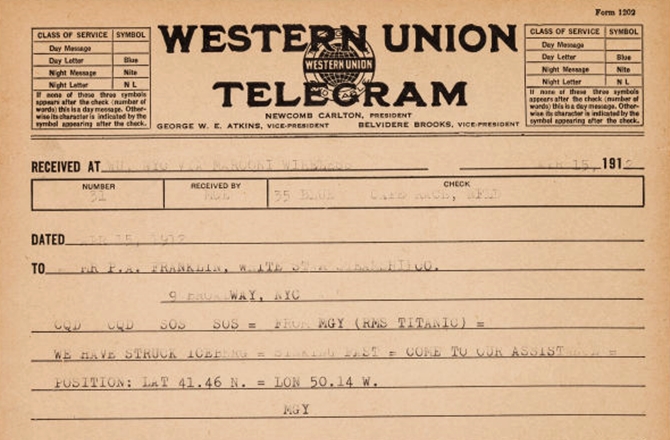 Form 1202
CLASS OF SERVICE SYMBOL
Day Message
Day Letter Blue
Night Message Nite
Night Letter N L
If none of these three symbols
appears after the check (number of
words) this is a day message. Other-
wise its character is indicated by the
symbol appearing after the check.
WESTERN UNION
WESTERN UNION
TELEGRAM
NEWCOMB CARLTON, PRESIDENT
GEORGE W. E. ATKINS, VICE-PRESIDENT BELVIDERE BROOKS, VICE-PRESIDENT
CLASS OF SERVICE SYMBOL
Day Message
Day Letter Blue
Night Message Nite
Night Letter N L
If none of these three symbols
appears after the check (number of
words) this is a day message. Other-
wise its character is indicated by the
symbol appearing after the check.
RECEIVED AT WU, NYC VIA MARCONI WIRELESS 15, 1912
NUMBER RECEIVED BY CHECK
31 35 BLUE CAPE RACE, NFLD
DATED APR 15, 1912
TO MR P.A. FRANKLIN, WHITE STAR STEAMSHIP CO.
9 BROADWAY, NYC
CQD CQD SOS SOS = FROM MGY (RMS TITANIC) =
WE HAVE STRUCK ICEBERG = SINKING FAST = COME TO OUR ASSISTANCE =
POSITION: LAT 41.46 N. = LON 50.14 W.
MGY